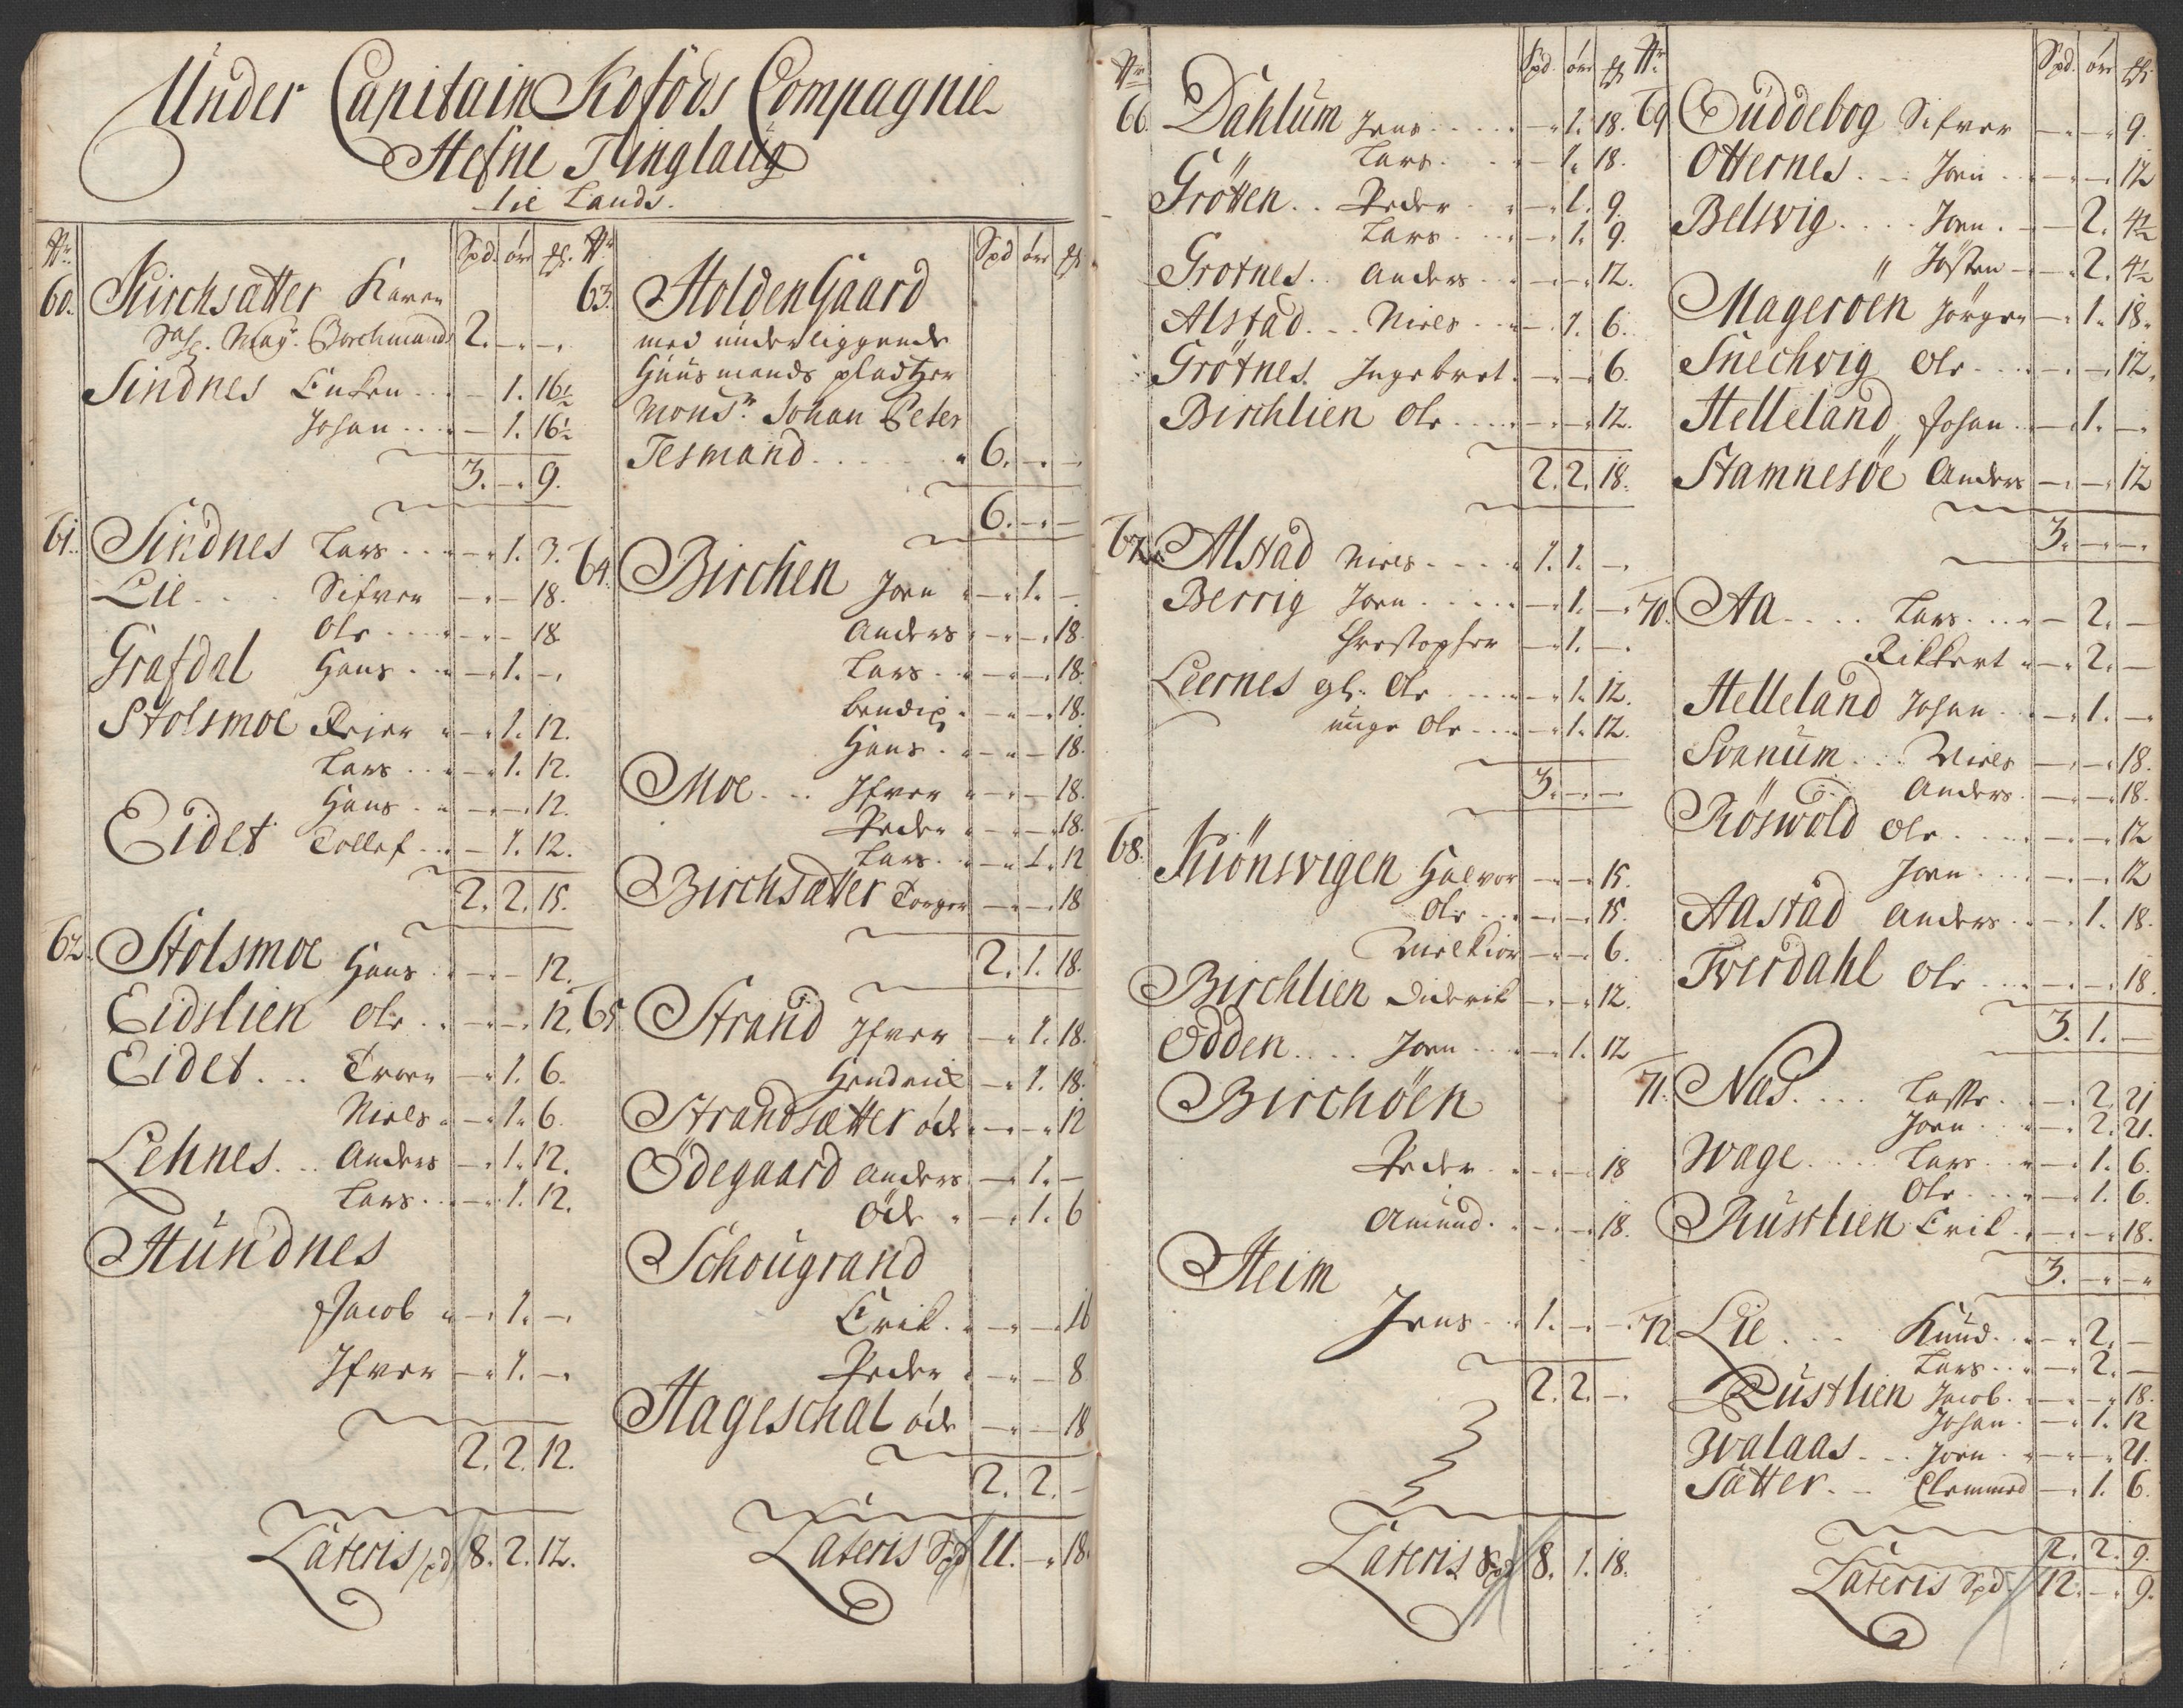 Under Capitain Kofods Compagnie
Hefne Tinglaug
til Lands.
Nr. Spd. ört. ß.
60. Kirchsætter Karen
Sal. Mag. Borchmands 2. - -
Sindnes Enken - 1. 16½
Johan - 1. 16½
3. - 9.
61. Sindnes Lars - 1. 3.
Lie Sifver - - 18.
Ole - - 18
Grafdal Hans - 1. -
Stolsmoe Reier - 1. 12.
Lars - 1. 12.
Hans - - 12.
Eidet Tollef - 1. 12.
2. 2. 15.
62. Stolsmoe Hans - - 12.
Eidslien Ole - - 12.
Eidet Troen - 1. 6.
Niels - 1. 6.
Lehnes Anders - 1. 12.
Lars - 1. 12.
Hundnes
Jacob - 1. -
Ifver - 1. -
2. 2. 12.
Lateris spd 8. 2. 12.
Nr. Spd ört ß
63. Holden Gaard
med underliggende
Huusmands pladtzer
Monsr. Johan Peter
Tesmand 6. - -
6. - -
64. Birchen Joen - 1. -
Anders - - 18.
Lars - - 18.
Bendix - - 18.
Hans - - 18.
Moe Ifver - - 18.
Peder - - 18.
Lars - 1. 12
Birchsætter Torger - - 18
2. 1. 18.
65. Strand Ifver - 1. 18.
Hendrik - 1. 18.
Strandsætter öde - - 12
Ödegaard Anders - 1. -
Öde - 1. 6
Schougrand
Erik - - 16
Peder - - 8
Hageschal öde - - 18
2. 2. -
Lateris Spd 11. - 18.
Nr. Spd. ört ß
66. Dahlum Jens - 1. 18.
Lars - 1. 18.
Grötten Peder - 1. 9.
Lars - 1. 9.
Grotnes Anders - - 12.
Alstad Niels - 1. 6.
Grötnes Ingebret - - 6.
Birchlien Ole - - 12.
2. 2. 18.
67. Alstad Niels 1. 1. -
Berrig Joen - 1. -
Christopher - 1. -
Leernes gl. Ole - 1. 12.
unge Ole - 1. 12.
3. - -
68. Kiönsvigen Halvor - - 15.
Ole - - 15.
Melkior - - 6.
Birchlien Diderik - - 12.
Odden Joen - 1. 12
Birchöen
Peder - - 18
Amund - - 18.
Heim
Jens 1. - -
2. 2. -
Lateris Spd 8. 1. 18.
Nr. Spd. ört ß.
69 Guddebog Sifver - - 9.
Otternes Joen - - 12
Belsvig Joen - 2. 4½
Josten - 2. 4½
Mageröen Jörgen - 1. 18.
Snechvig Ole - - 12.
Helleland Johan - 1. -
Stamnesöe Anders - - 12
3. - -
70. Aa Lars - 2. -
Rikkert - 2. -
Helleland Johan - 1. -
Svanum Niels - - 18.
Anders - - 18.
Röswold Ole - - 12
Joen - - 12
Aastad Anders - 1. 18.
Tverdahl Ole - - 18.
3. 1. -
71. Næs Lasse - 2. 21
Joen - 2. 21.
Wage Lars - 1. 6.
Ole - 1. 6.
Rustlien Erik - - 18.
3. - -
72 Lie Knud - 2. -
Lars - 2. -
Rustlien Jacob - - 18.
Johan - 1. 12
Walaas Joen - - 21.
Sætter Clemmed - 1. 6.
2. 2. 9.
Lateris Spd 12. - 9.